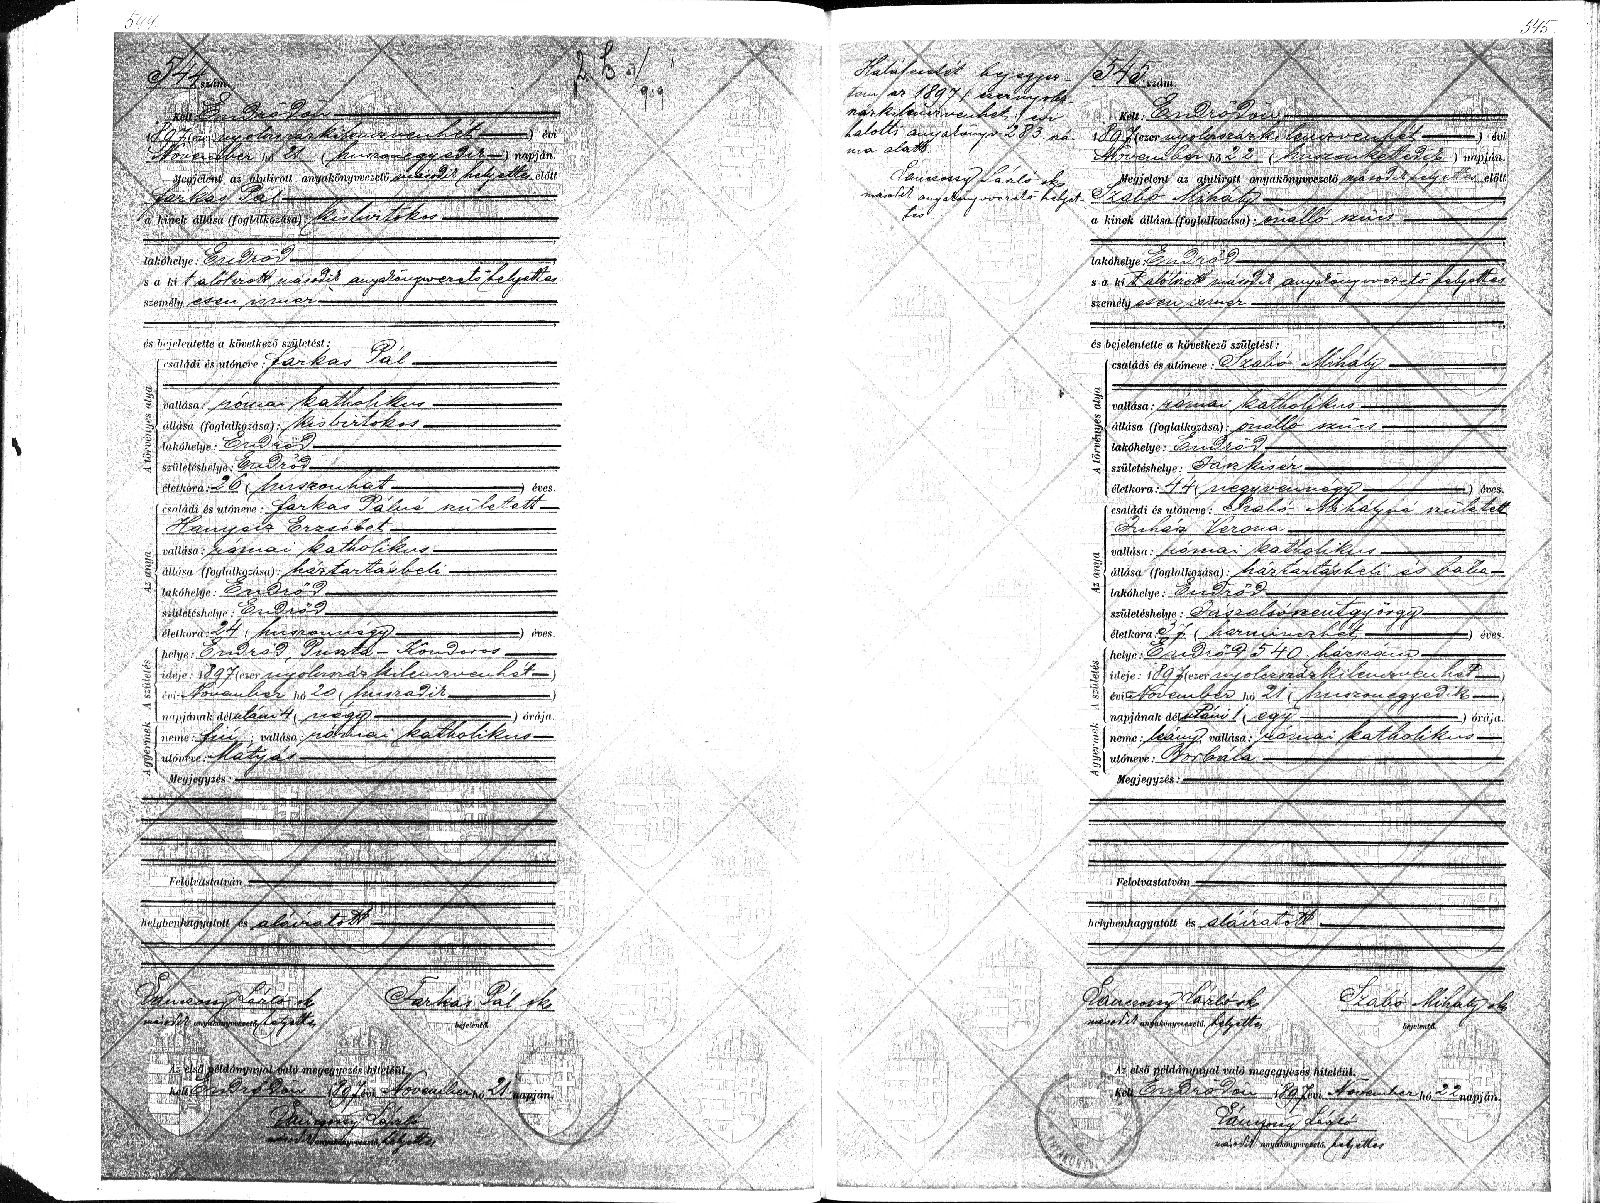 544.
544 szám.
Kelt Endrődön
1897 (ezer nyolcszázkilenczvenhét) évi
November hó 21 (huszonegyedik) napján.
Megjelent az alulirott anyakönyvvezető második helyettes előtt
Farkas Pál
a kinek állása (foglalkozása): kisbirtokos
lakóhelye: Endrőd
s a kit alólirott második anyakönyvvezető helyettes
személyesen ismer
és bejelentette a következő születést:
A törvényes atya
családi és utóneve: Farkas Pál
vallása: római katholikus
állása (foglalkozása): kisbirtokos
lakóhelye: Endrőd
születéshelye: Endrőd
életkora: 26 (huszonhat) éves.
Az anya
családi és utóneve: Farkas Pálné született
Hanyecz Erzsébet
vallása: római katholikus
állása (foglalkozása): háztartásbeli
lakóhelye: Endrőd
születéshelye: Endrőd
életkora: 24 (huszonnégy) éves.
A születés
helye: Endrőd, Puszta-Kondoros
ideje: 1897 (ezer nyolczszázkilenczvenhét)
évi November hó 20 (huszadik)
napjának délutáni 4 (négy) órája.
A gyermek
neme: fiú, vallása: római katholikus
utóneve: Mátyás
Megjegyzés:
Felolvastatván
helybenhagyatott és aláíratott
Vánczony László sk
második anyakönyvvezető. helyettes
Farkas Pál sk
bejelentő.
Az első példánynyal való megegyezés hiteléül.
Kelt Endrődön 1897 évi November hó 21 napján.
Vánczony László
második anyakönyvvezető. helyettes
545
Halálesetét bejegyez-
tem az 1897 / ezernyolcz-
százkilenczvenhét / évi
halotti anyakönyv 283 szá
ma alatt.
Vánczony László sk
második anyakönyvvezető helyet-
tes
545 szám.
Kelt Endrődön
1897 (ezer nyolczszázkilenczvenhét) évi
November hó 22 (huszonkettedik) napján.
Megjelent az alulirott anyakönyvvezető második helyettes előtt
Szabó Mihály
a kinek állása (foglalkozása): önálló szűcs
lakóhelye: Endrőd
s a kit alólirott második anyakönyvvezető helyettes
személyesen ismer
és bejelentette a következő születést:
A törvényes atya
családi és utóneve: Szabó Mihály
vallása: római katholikus
állása (foglalkozása): önálló szűcs
lakóhelye: Endrőd
születéshelye: Jászkisér
életkora: 44 (negyvennégy) éves.
Az anya
családi és utóneve: Szabó Mihályné született
Juhász Verona
vallása: római katholikus
állása (foglalkozása): háztartásbeli és bába
lakóhelye: Endrőd
születéshelye: Jászalsószentgyörgy
életkora: 37 (harminczhét) éves.
A születés
helye: Endrőd, 540 házszám
ideje: 1897 (ezer nyolczszázkilenczvenhét)
évi November hó 21 (huszonegyedik)
napjának délutáni 1 (egy) órája.
A gyermek
neme: leány, vallása: római katholikus
utóneve: Borbála
Megjegyzés:
Felolvastatván
helybenhagyatott és aláíratott
Vánczony László sk
második anyakönyvvezető. helyettes
Szabó Mihály sk
bejelentő.
Az első példánynyal való megegyezés hiteléül.
Kelt Endrődön 1897 évi November hó 22 napján.
Vánczony László
második anyakönyvvezető. helyettes